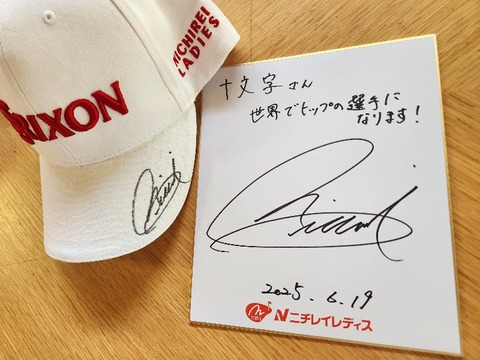 RIXON
NICHIREI
LADIES
十文字さん
世界でトップの選手に
なります!
2025.6.19
ニチレイレディス